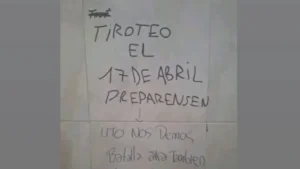 TIROTEO
EL
17 DE ABRIL
PREPARENSEN
NOS DEMOS